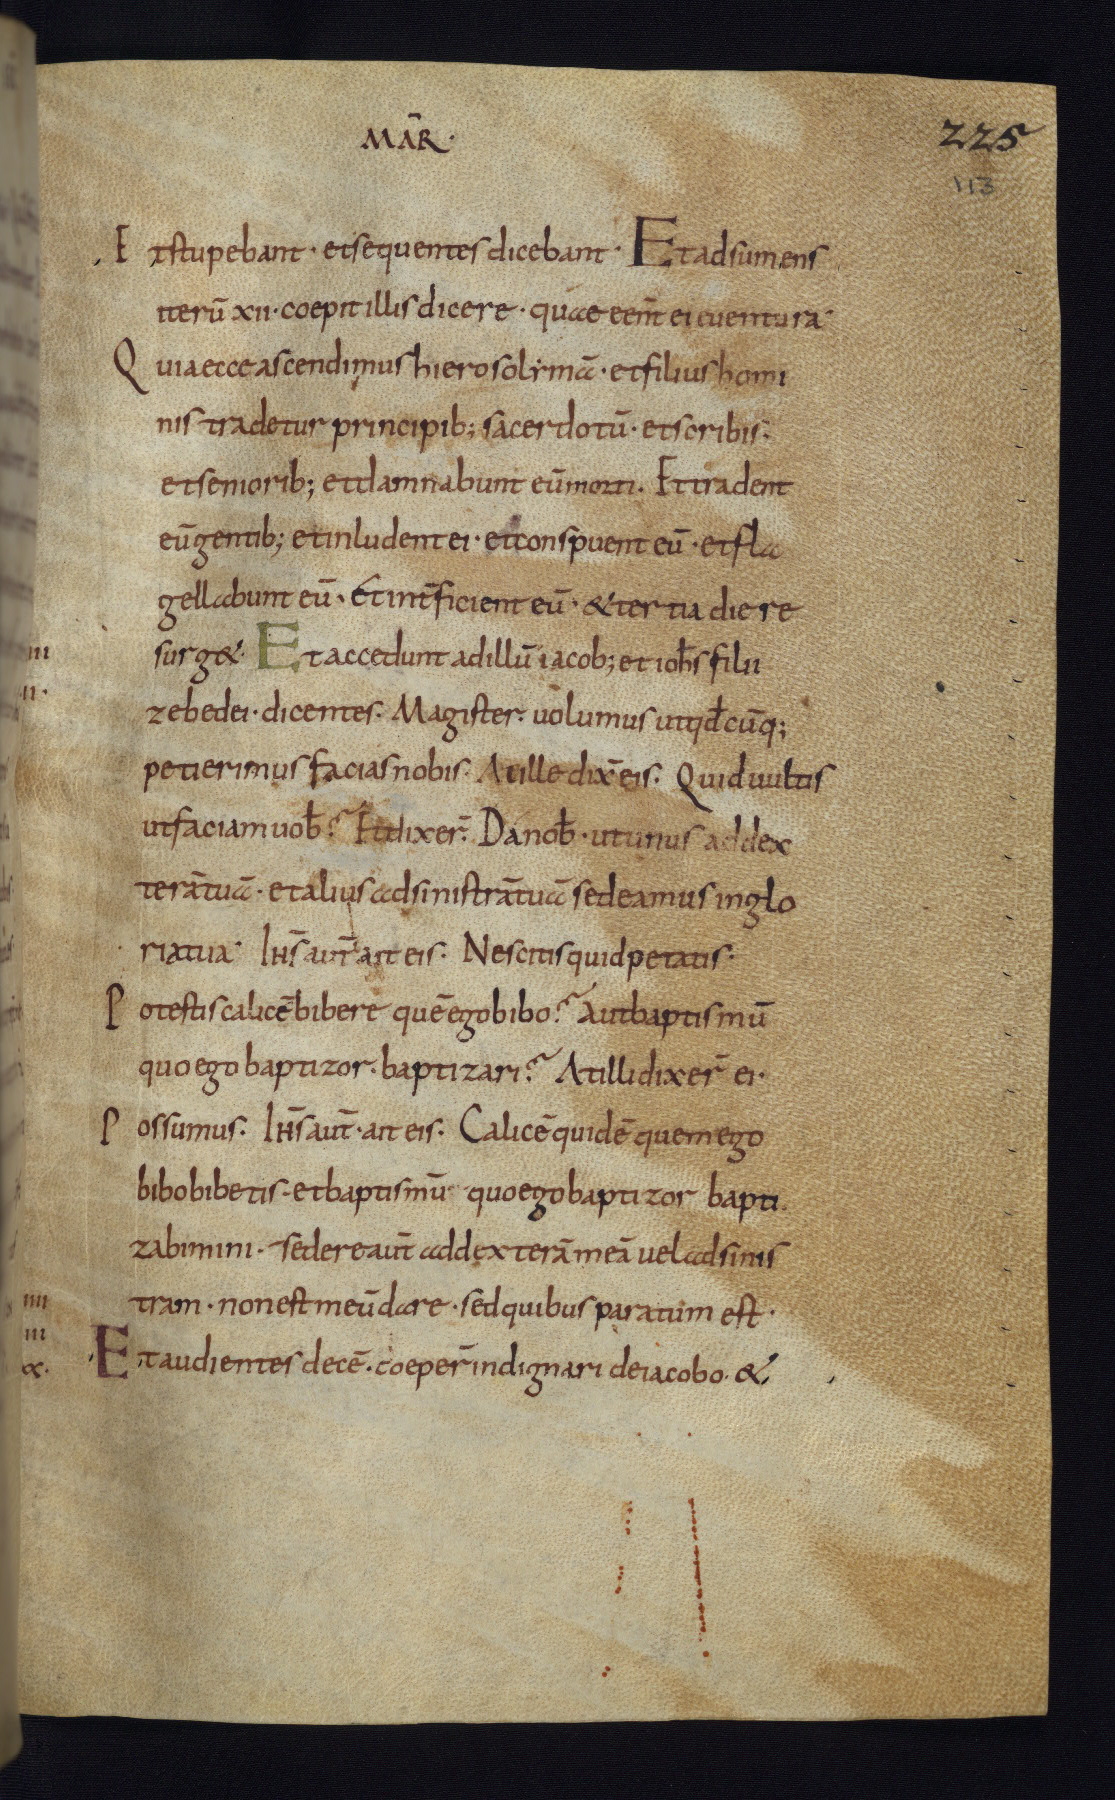 MAR̄·
225
113
Et stupebant · et sequentes dicebant · Et adsumens
iterū xii · coepit illis dicere · quae eēnt ei euentura·
Quia ecce ascendimus hierosolymā · et filius homi
nis tradetur principib; sacerdotū · et scribis·
et seniorib; et damnabunt eū morti. Et tradent
eū gentib; et inludent ei · et conspuent eū · et fla
gellabunt eū · Et int̄ficient eū · & tertia die re
surg& · Et accedunt ad illū iacob; et ioh̄s filii
iii
ii·
zebedei · dicentes · Magister · uolumus ut qd̄cūq;
petierimus facias nobis · At ille dix̄ eis · Quid uultis
ut faciam uob̄? Et dixer̄ · Da nob̄ · ut unus ad dex
terā tuā · et alius ad sinistrā tuā sedeamus in glo
ria tua· Ihs̄ aut̄ ait eis · Nescitis quid petatis·
Potestis calicē bibere quē ego bibo? Aut baptismū
quo ego baptizor · baptizari? At illi dixer̄ ei·
Possumus · Ihs̄ aut̄ · ait eis · Calicē quidē quem ego
bibo bibetis · et baptismū quo ego baptizor bapti
zabimini · Sedere aut̄ ad dexterā meā uel ad sinis
tram · non est meū dare · sed quibus paratum est ·
iiii
iii
x·
Et audientes decē · coeper̄ indignari de iacobo · &